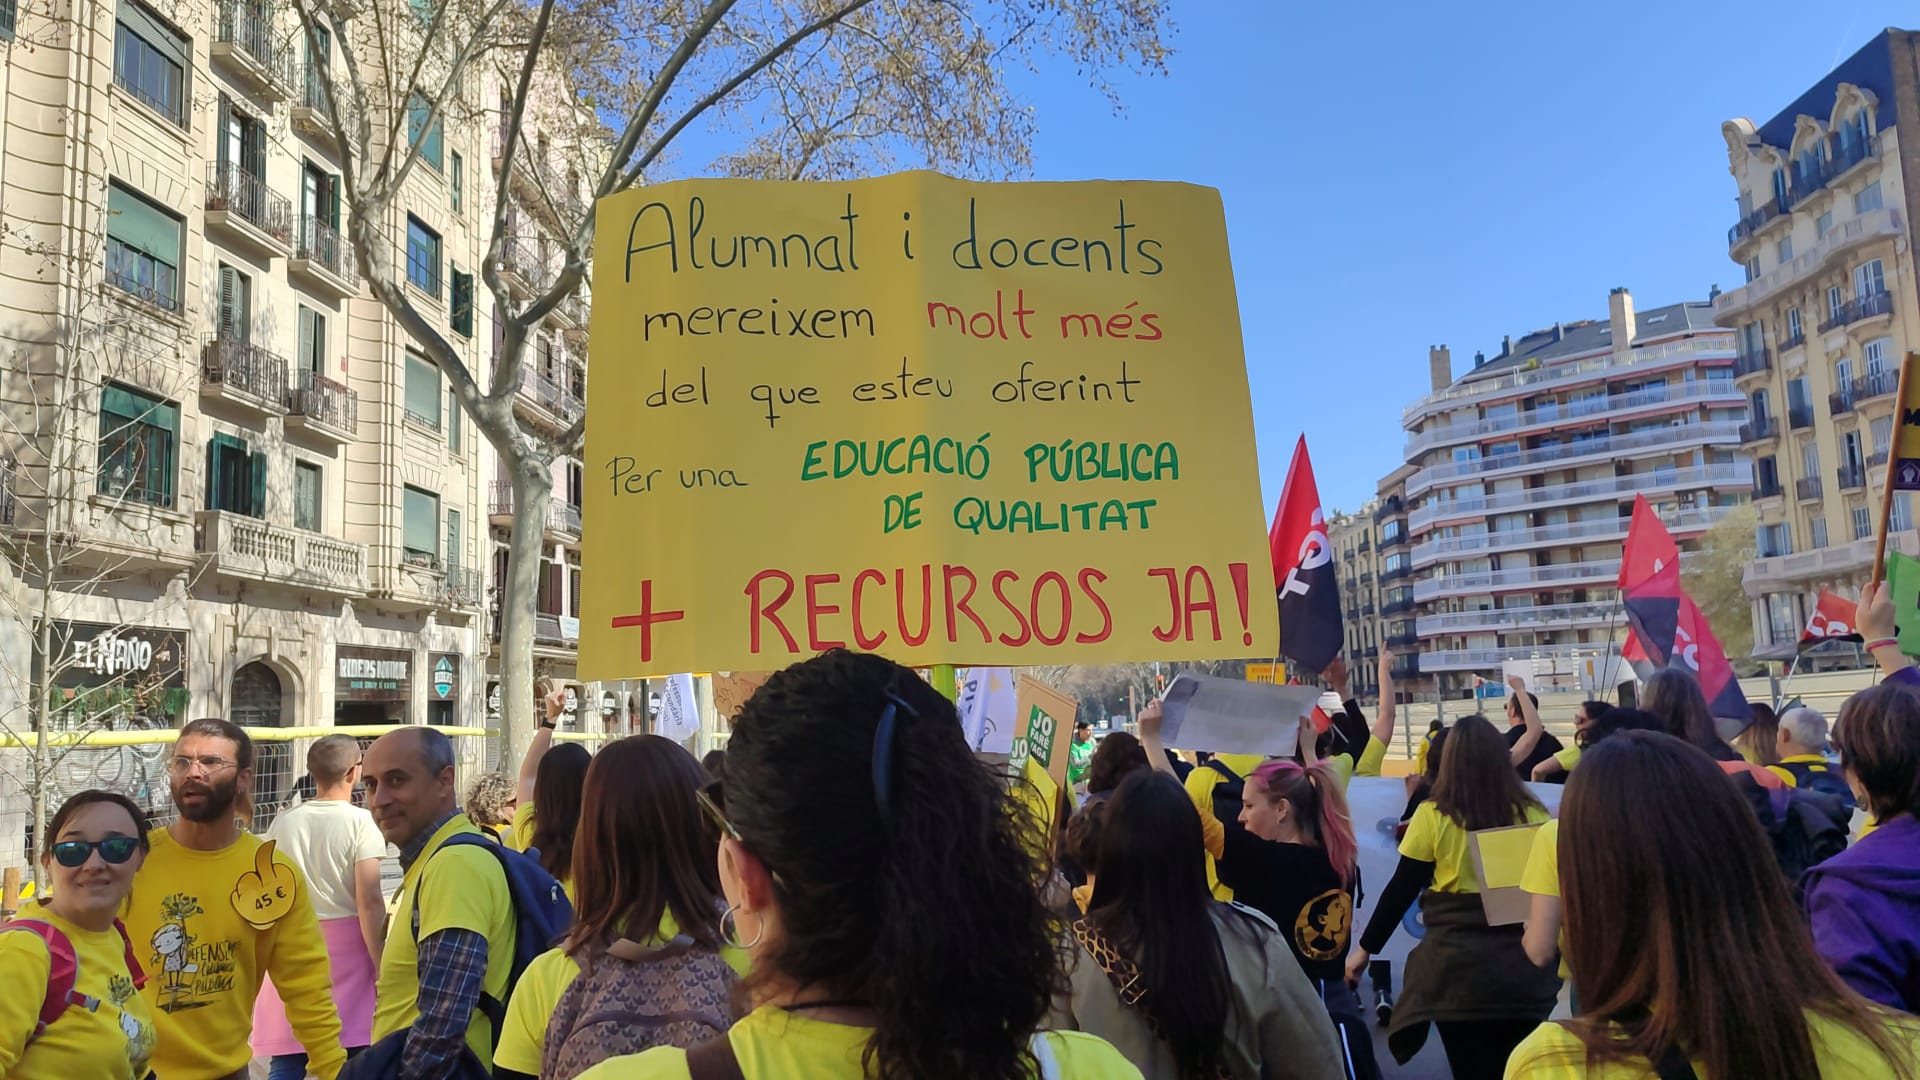 Alumnat i docents
mereixem molt més
del que esteu oferint
Per una EDUCACIÓ PÚBLICA
DE QUALITAT
+ RECURSOS JA!
EL ÑAÑO
RIDERS BOUTIQUE
45 €
JO
FARÉ
VAGA
JO